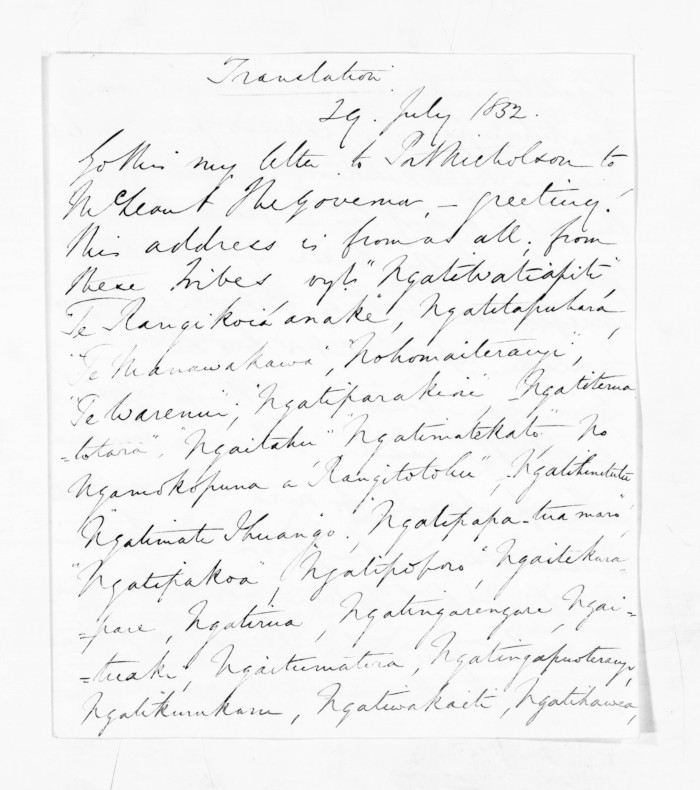 Translation
29. July 1852.
Go this my letter to Port Nicholson to
McLean & The Governor, – greeting!
This address is from us all; from
these tribes vizt. "Ngatiwatiapiti",
"Te Rangikoiaanake", Ngatitapuhara,
"Te Manawakawa", "Nohomaiterangi",
"Te Warenui"; "Ngatiparakiri", Ngatiterua
=totara", "Ngaitahu" "Ngatimatekato", No
Ngamokopuna a Rangitotohu", Ngatihinetutu
"Ngatimate Ihuango; "Ngatipapa-tuamaro",
"Ngatipakoa", Ngatipoporo", Ngaitekura-
=pare, Ngatirua, Ngatingarengare, Ngai-
=tuaki, Ngaitumatera, Ngatingapuoterangi,
Ngatikurukuru, Ngatiwakaiti, Ngatihawea,